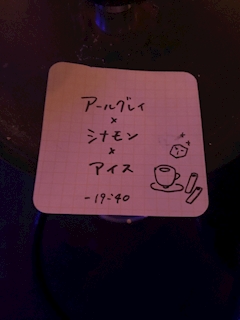 アールグレイ
×
シナモン
×
アイス
-19:40